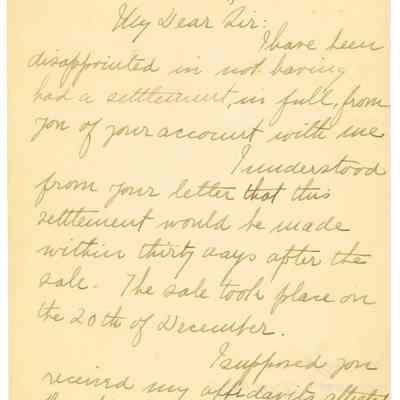 My Dear Sir:
I have been
disappointed in not having
had a settlement, in full, from
you of your account with me
I understood
from your letter that this
settlement would be made
within thirty days after the
sale. The sale took place on
the 20th of December.
I supposed you
received my affidavits attested